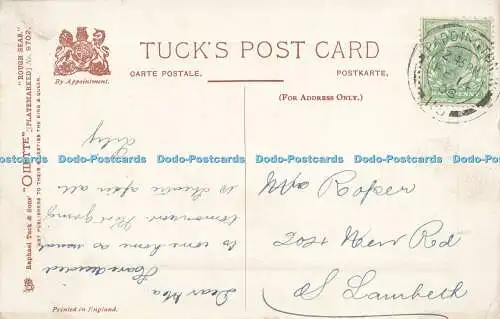 TUCK'S POST CARD
CARTE POSTALE.
POSTKARTE.
By Appointment.
(FOR ADDRESS ONLY.)
Raphael Tuck & Sons' "OILETTE" [PLATEMARKED] No. 6702.
"ROUGH SEAS."
ART PUBLISHERS TO THEIR MAJESTIES THE KING & QUEEN.
Printed in England.
PADDINGTON
Dear Ma
Have decided
to come home as usual
tomorrow Not going
to theatre after all
Mrs Roper
204 New Rd
S Lambeth
Dodo-Postcards Dodo-Postcards Dodo-Postcards Dodo-Postcards Dodo-Postcards Dodo-Postcards